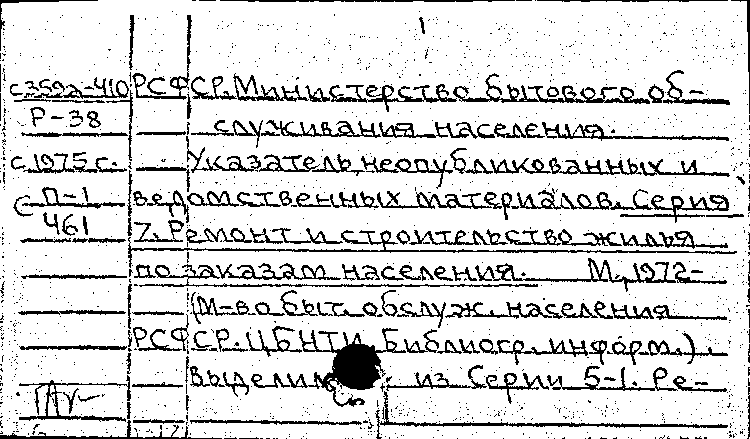 1
с3592-410 РСФСР. Министерство бытового об-
Р-38 служивания населения.
с 1975 г. Указатель неопубликованных и
с П-1 ведомственных материалов. Серия
461 7. Ремонт и строительство жилья
по заказам населения. М., 1972-
(М-во быт. обслуж. населения
РСФСР. ЦБНТИ. Библиогр. информ.).
из Серии 5-1. Ре-